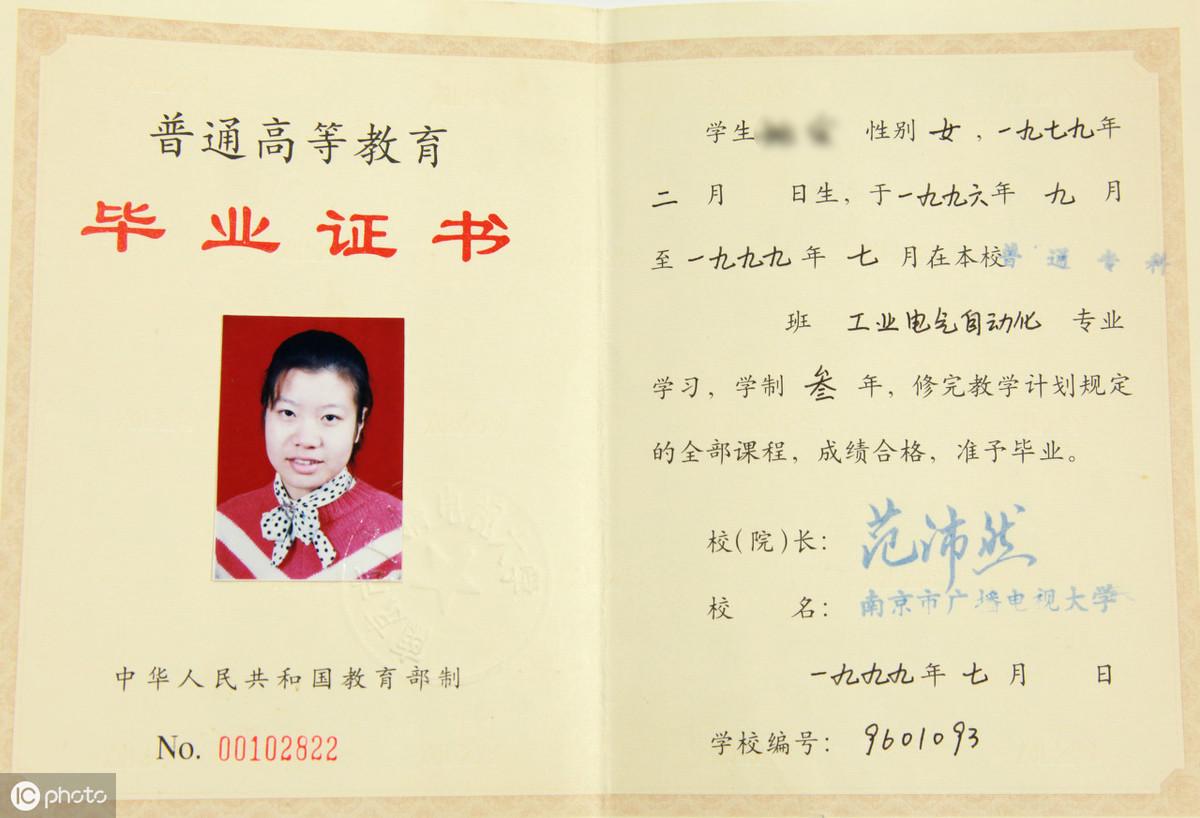 普通高等教育
毕业证书
中华人民共和国教育部制
No. 00102822
学生 性别 女，一九七九年
二 月 日生，于一九九六年 九 月
至 一九九九 年 七 月在本校普通专科
班 工业电气自动化 专业
学习，学制 叁 年，修完教学计划规定
的全部课程，成绩合格，准予毕业。
校（院）长：范沛然
校 名：南京市广播电视大学
一九九九年 七 月 日
学校编号：9601093
IC photo